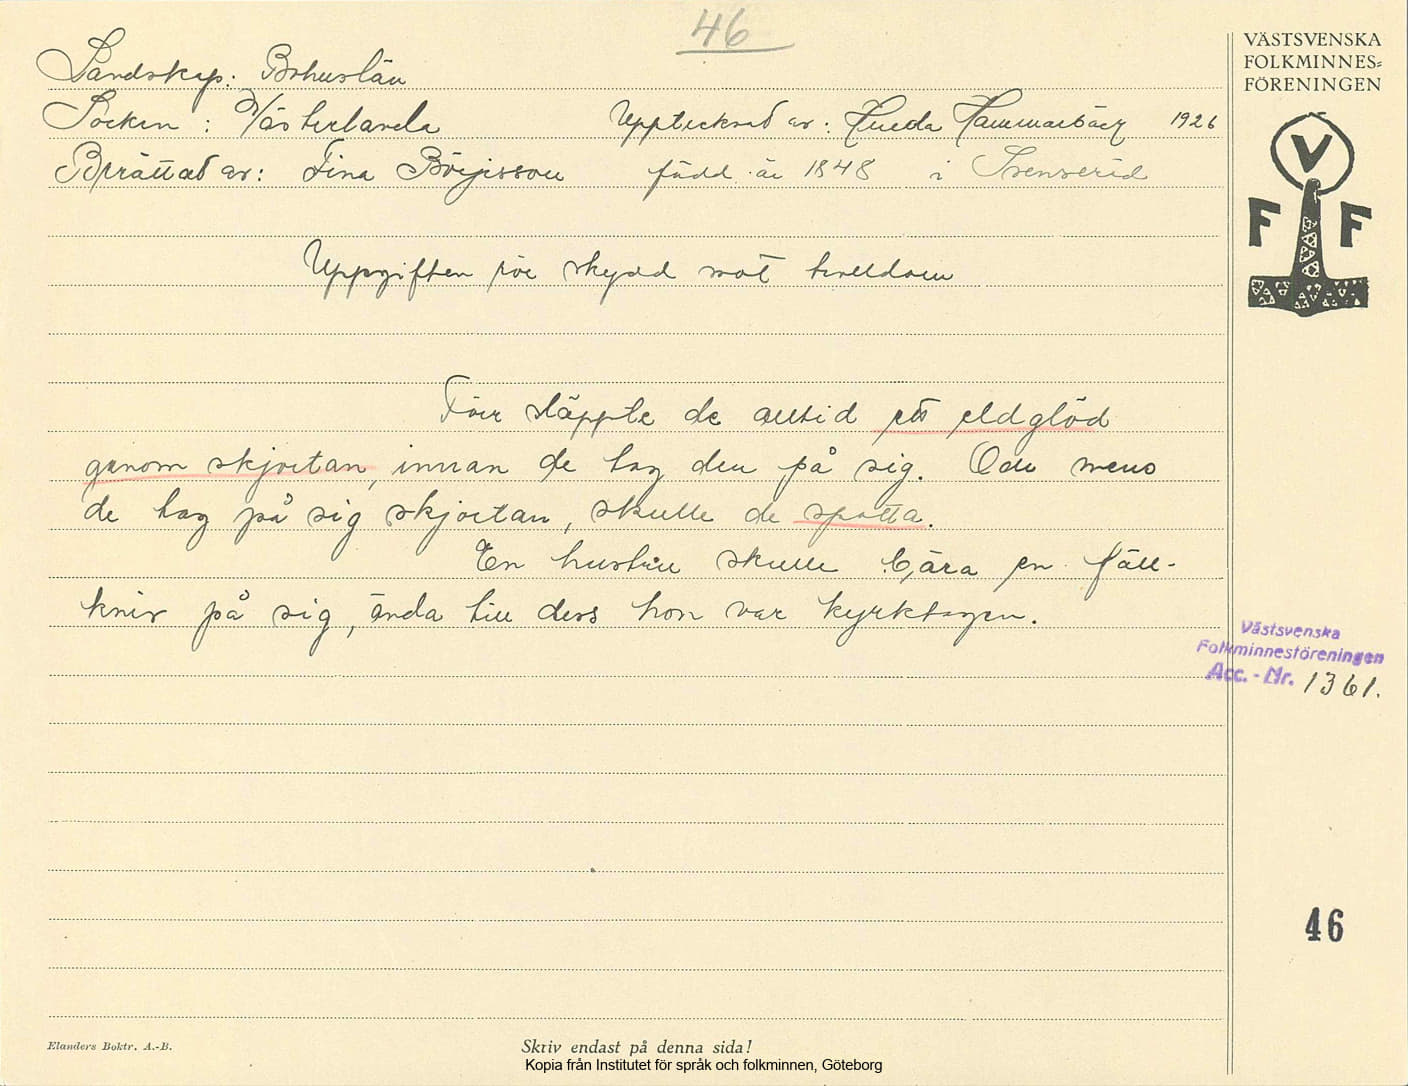 46
Landskap: Bohuslän
Socken: Västerlanda Upptecknad av: Hulda Hammarbäck 1926
Berättad av: Tina Börjesson född år 1848 i
Uppgiften rör skydd mot trolldom
Förr släppte de alltid ett eldglöd
genom skjortan, innan de tog den på sig. Och mens
de tog på sig skjortan, skulle de spotta.
En hustru skulle bära en fäll-
kniv på sig, ända till dess hon var kyrktagen.
VÄSTSVENSKA
FOLKMINNES=
FÖRENINGEN
V
F F
Västsvenska
Folkminnesföreningen
Acc. - Nr. 1361.
46
Elanders Boktr. A.-B.
Skriv endast på denna sida!
Kopia från Institutet för språk och folkminnen, Göteborg